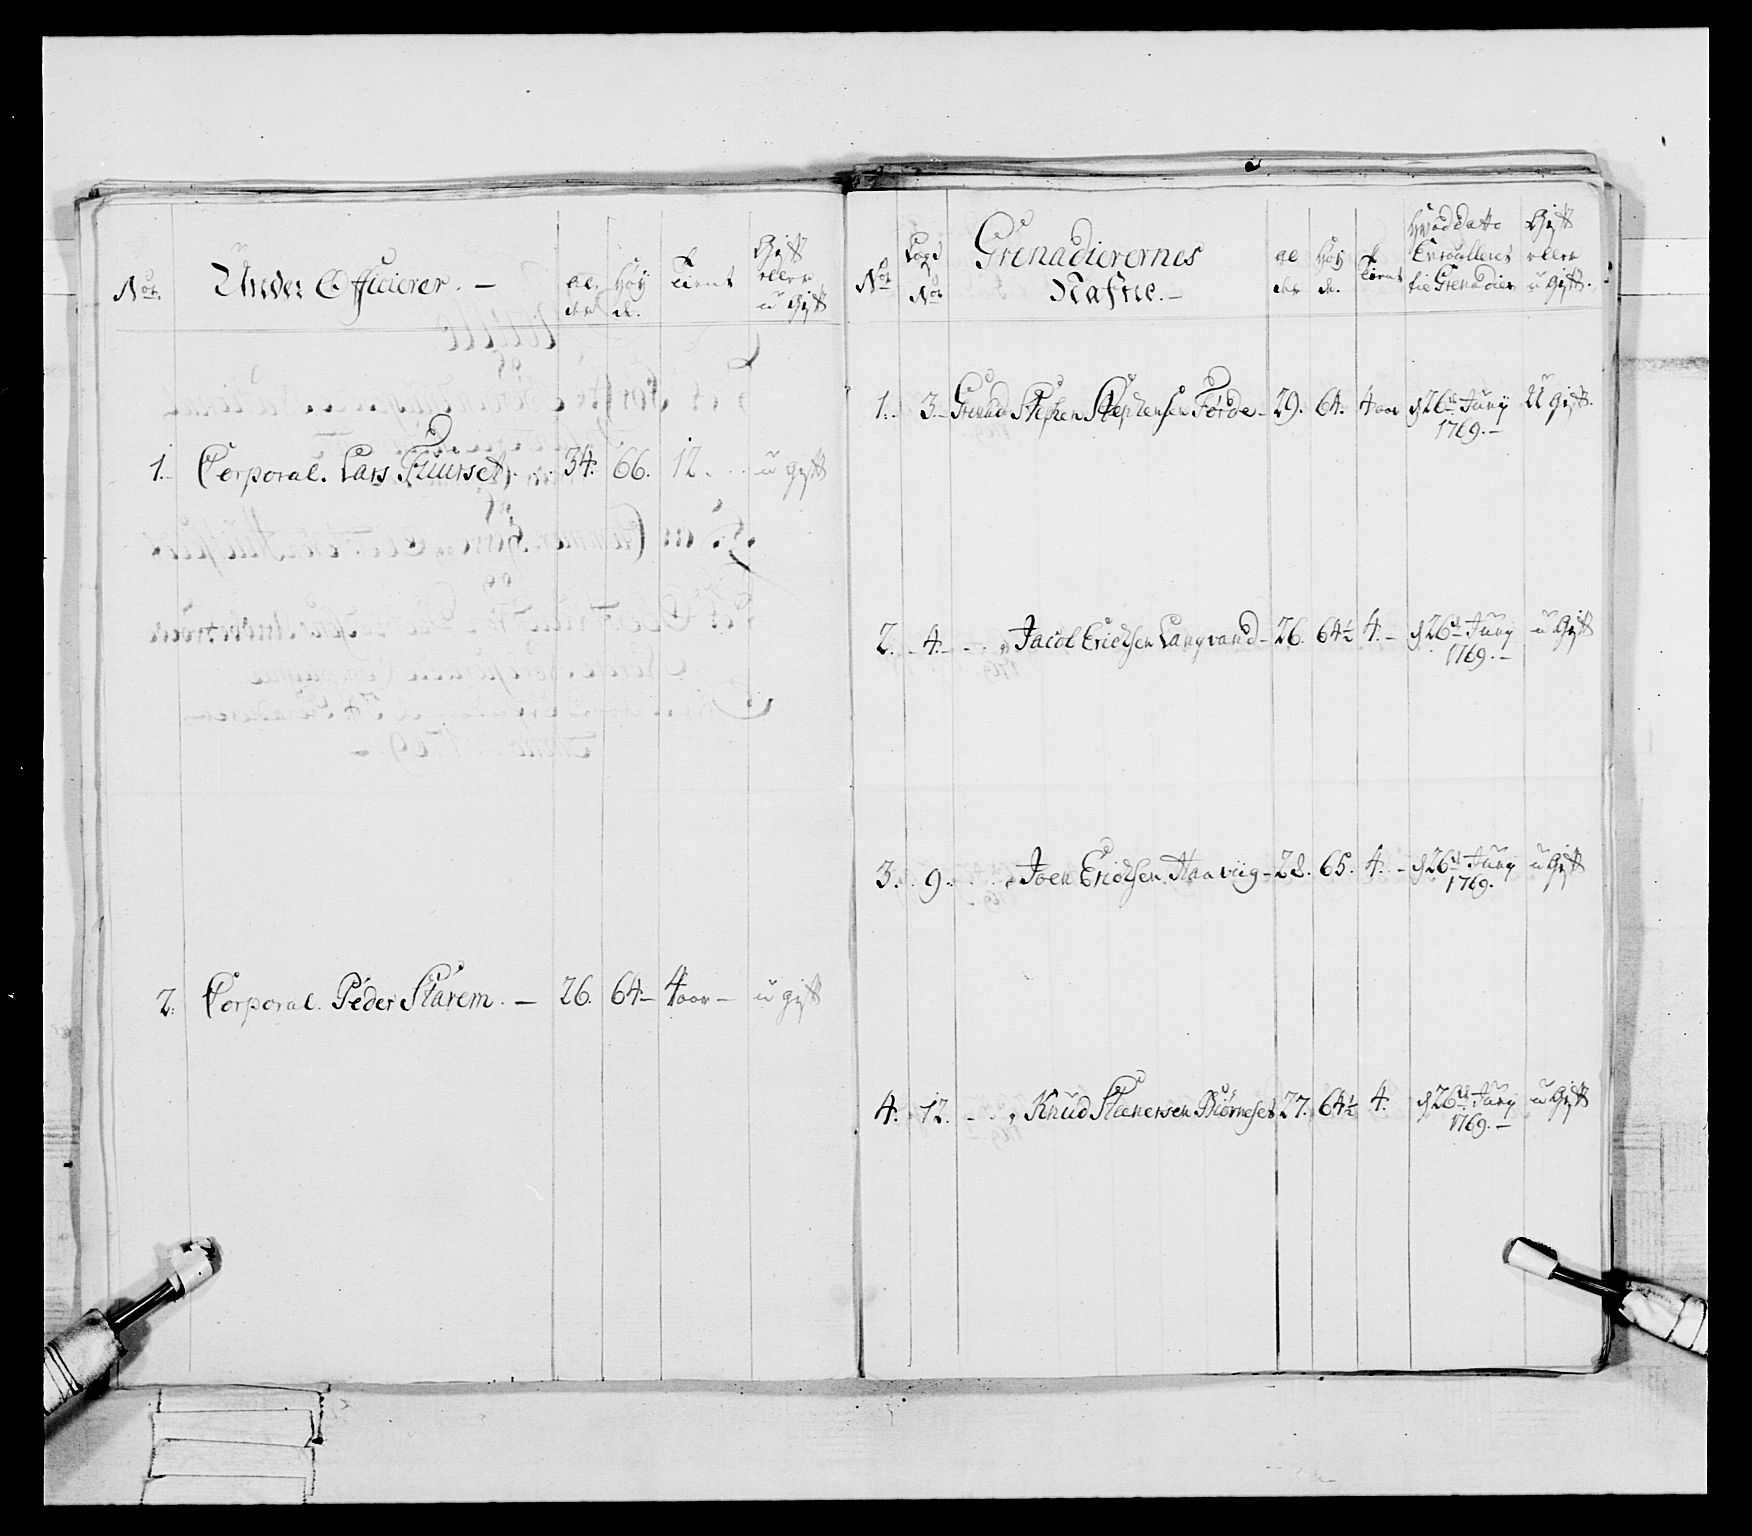 No:
Under Officierer. —
al
der
Høy
de.
Tient
Gift
eller
u Gift
1. Corporal. Lars Fuurset. 34. 66. 12. u gift
2. Corporal. Peder Starem. — 26. 64 — 4 aar — u gift
No:
Lægd
No:
Grenadierernes
Nafne. —
al
der
Høy
de.
Tient
Hvad dato
Enroulleret
til Grenadier
Gift
eller
u Gift.
1. 3. Grenad Stephen Stephensen Førde — 29. 64. 4 aar d 26de Juny U gift.
1769. —
2. 4. " Jacob Erichsen Langvand — 26. 64½ 4. — d 26de Juny u Gift
1769. —
3. 9. " Joen Erichsen Haaviig — 28. 65. 4. — d 26de Juny u Gift
1769.
4. 12. " Knud Biørneset 27. 64½ 4. d 26de Juny u Gift
1769. —